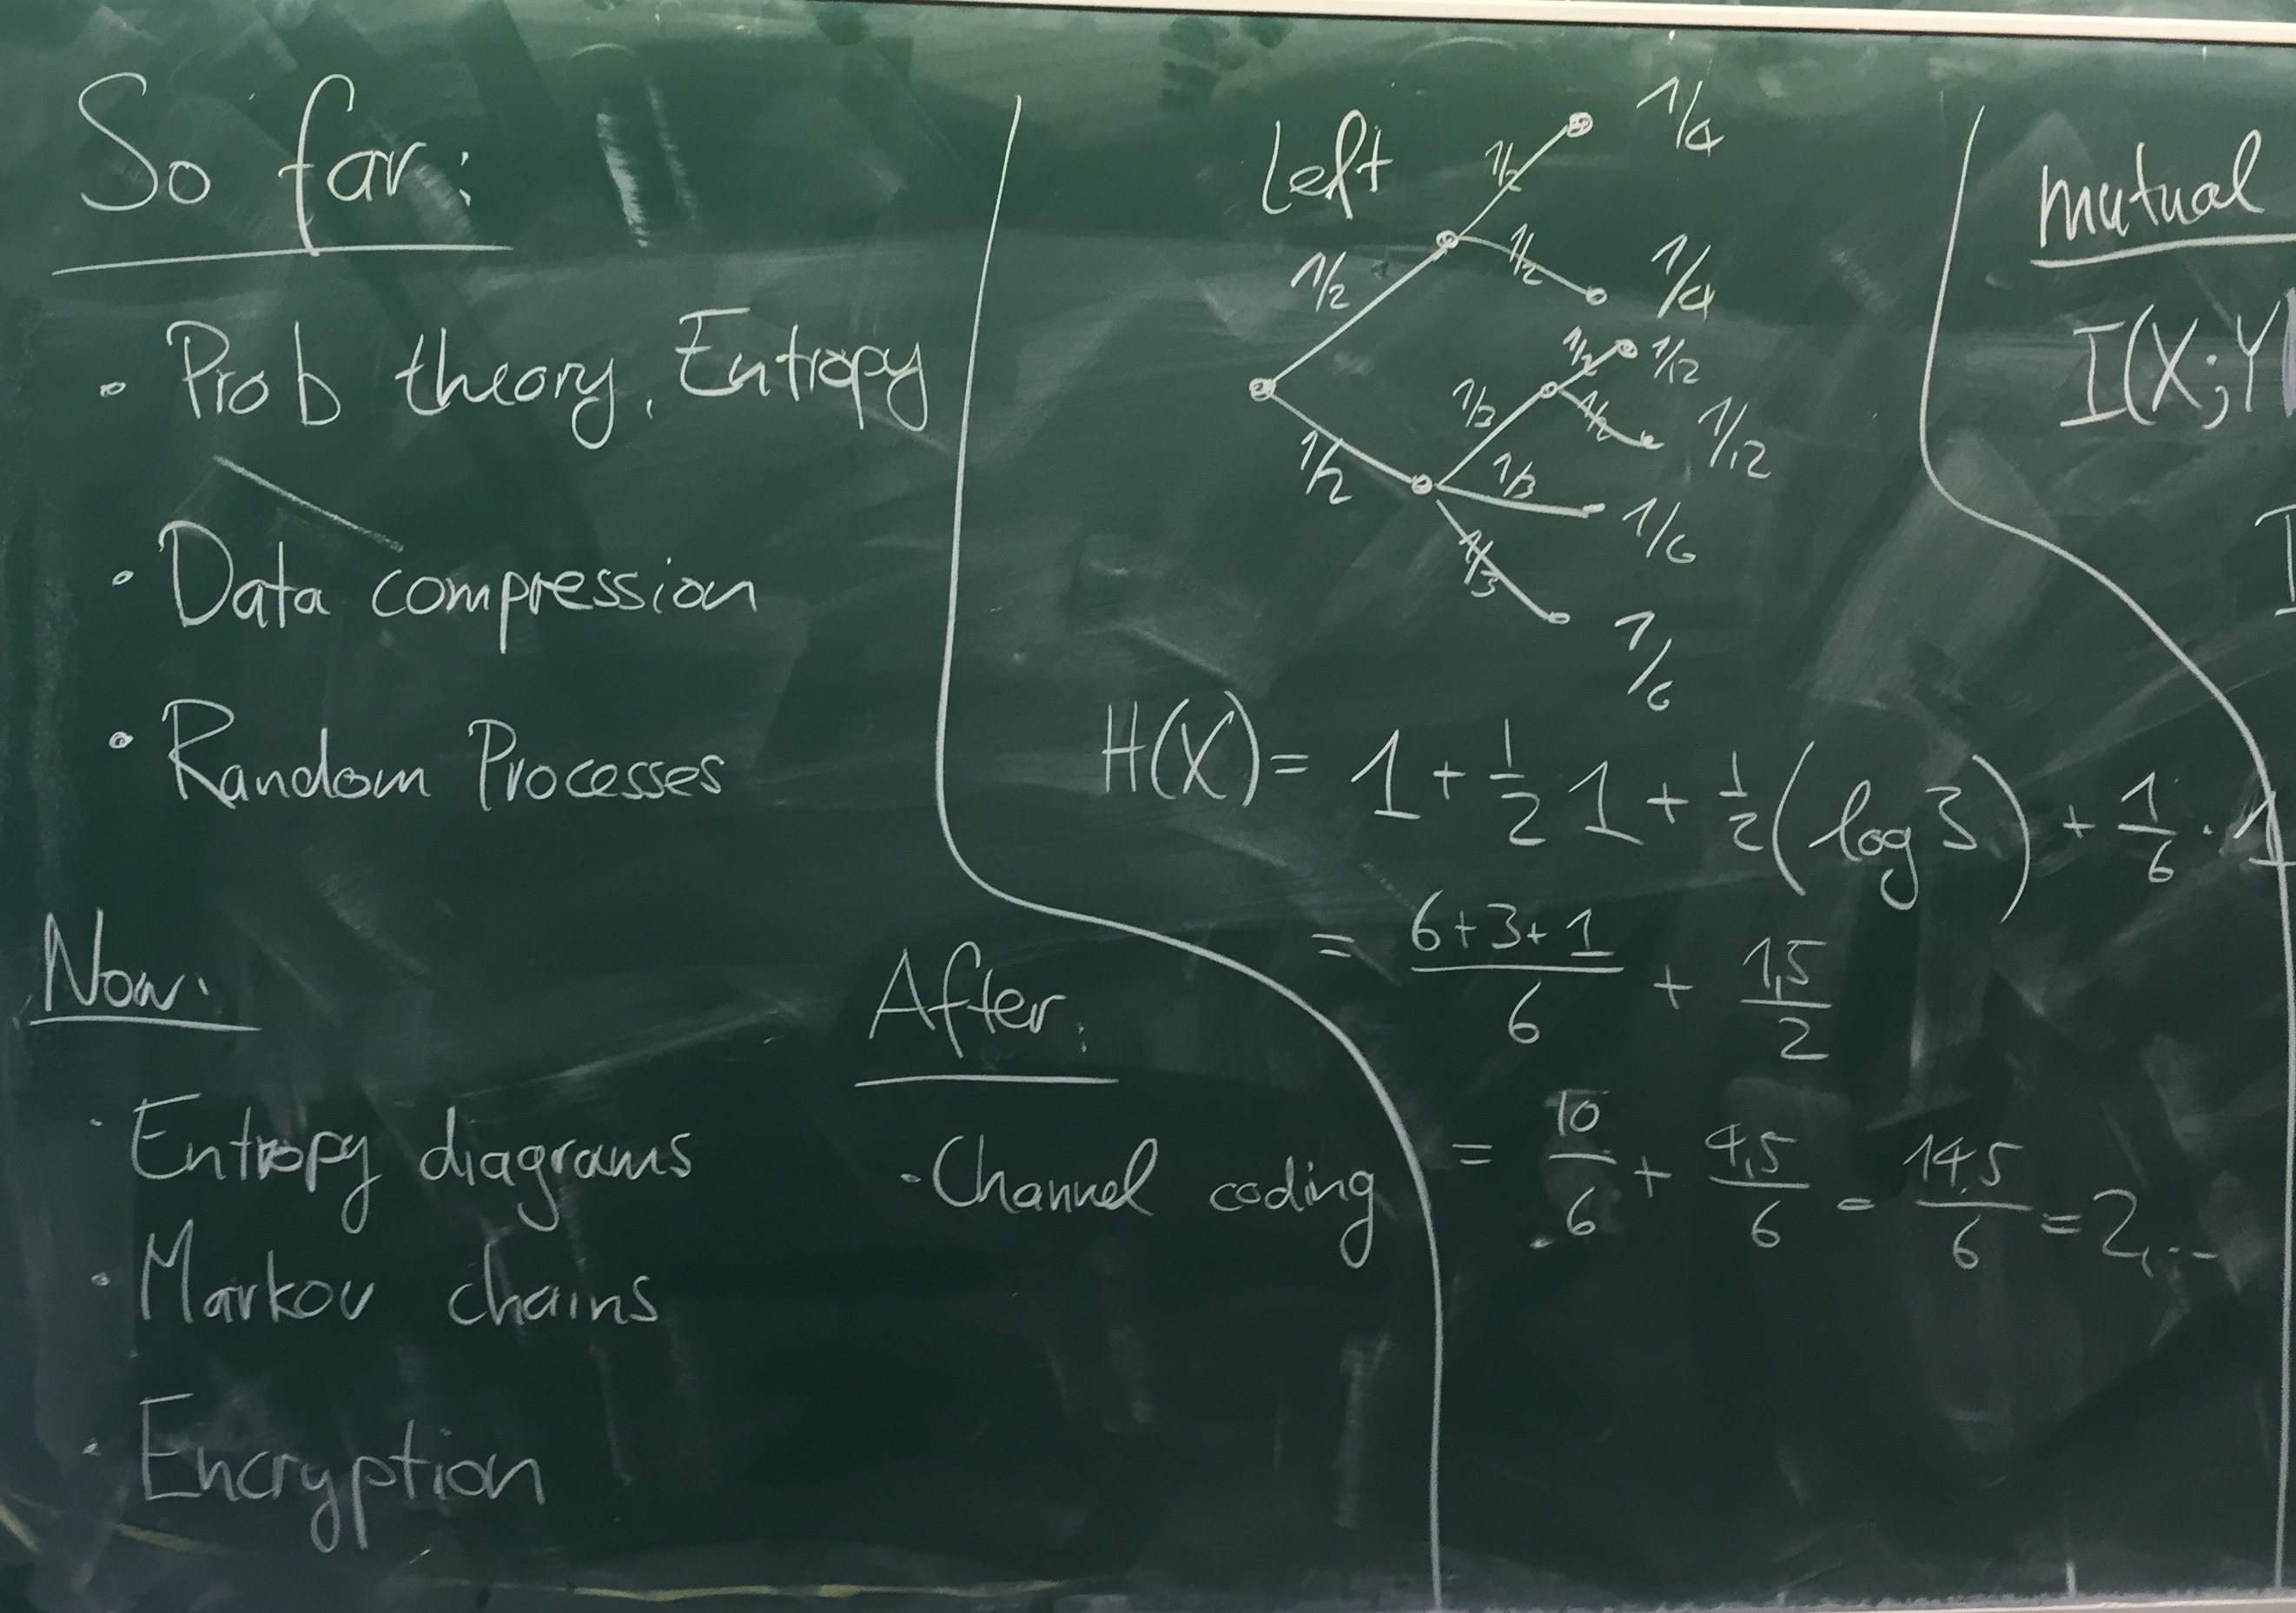 So far:
• Prob theory, Entropy
• Data compression
• Random Processes
Now:
• Entropy diagrams
• Markov chains
• Encryption
After:
• Channel coding
Left
1/2
1/2
1/4
1/2
1/4
1/2
1/3
1/2
1/12
1/2
1/12
1/3
1/6
1/3
1/6
H(X) = 1 + 1/2 1 + 1/2 (log 3) + 1/6 · 1
= 6+3+1/6 + 1,5/2
= 10/6 + 4,5/6 = 14,5/6 = 2,...
mutual
I(X;Y
I